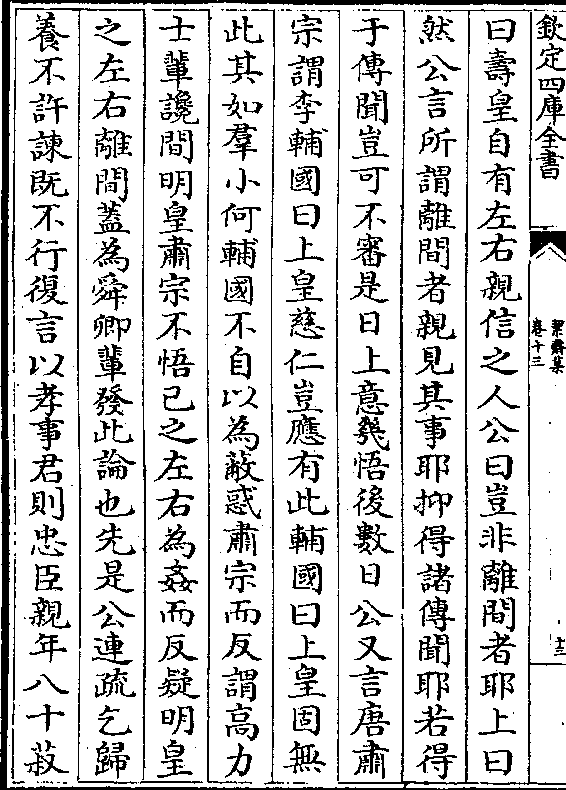 欽定四庫全書
絜齋集
卷十三
十三
曰壽皇自有左右親信之人公曰豈非離間者耶上曰
然公言所謂離間者親見其事耶抑得諸傳聞耶若得
于傳聞豈可不審是日上意幾悟後數日公又言唐肅
宗謂李輔國曰上皇慈仁豈應有此輔國曰上皇固無
此其如羣小何輔國不自以為蔽惑肅宗而反謂高力
士輩讒間明皇肅宗不悟己之左右為姦而反疑明皇
之左右離間蓋為舜卿輩發此論也先是公連疏乞歸
養不許諫既不行復言以孝事君則忠臣親年八十菽